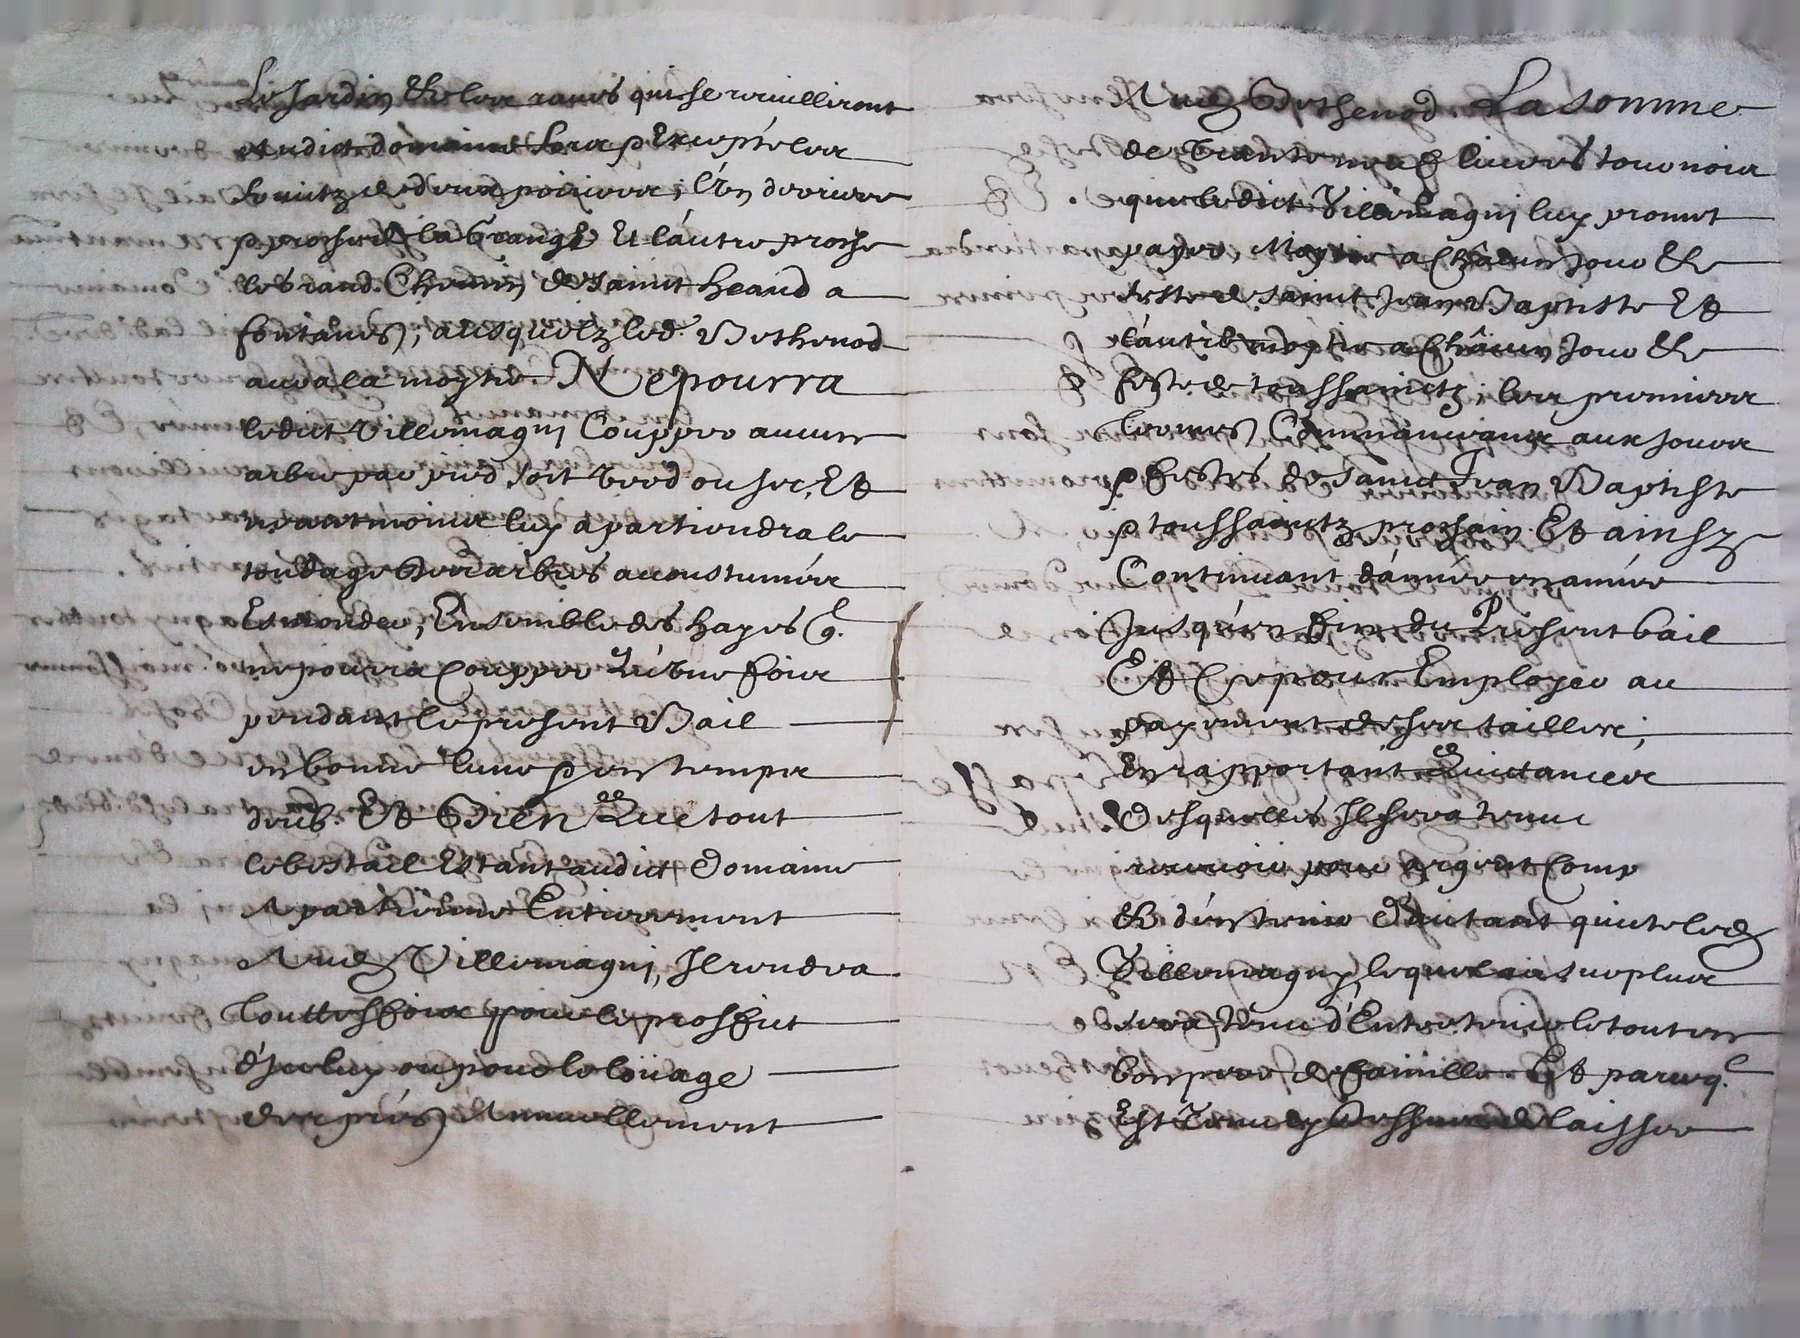 Le Jardin & les raves qui se recuilliront
audict domaine sera Excepté les
fruitz de deux poiriers; l'un derriere
proche la Grange Et l'autre proche
le grand Chemin de sainct heand a
fontanes; ausquelz led. Bethenod
aura la moytie. Ne pourra
ledict Villemagni Coupper aucun
arbre par pied soit verd ou sec, Et
neantmoins luy apartiendra le
tondage des arbres accoustumés
Esmonder, Ensemble des hayes q.
ne pourra Coupper qu'une fois
pendant le present Bail
en bonne lune & en temps
deub. Et Bien Que tout
le bestail Estant audict domaine
Apartienne Entierement
Aud Villemagni, Il rendra
touttesfois pour le proffict
d'Iceluy ou pour le loüage
des prés Annuellement
Aud Bethenod. La somme
de Trante neuf livres tournois
que ledict Villemagni luy promet
payer, Moytie a Châcun Jour &
feste de sainct Jean Baptiste Et
l'autre moytie a Châcun Jour &
feste de toussainctz; les premiers
termes Commancans aux Jours
& festes de sainct Jean Baptiste
& toussainctz prochain Et ainsy
Continuant d'année en année
Jusqu'en fin du Present bail
Et Ce pour Employer au
payement de ses tailles;
En rapportant Quictances
Desquelles Il sera tenu
recevoir pour argent Comp
& d'en tenir d'autant quicte led
Villemagny, lequel au surplus
sera tenu d'Entretenir le tout en
bon pere de famille Et parceq.
Est Tenu cy Dessus de laisser